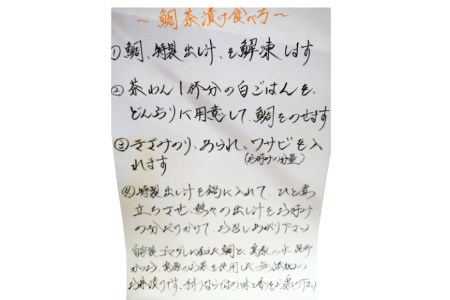 ～鯛茶漬け食べ方～
①鯛、特製出し汁、を解凍します
②茶わん1杯分の白ごはんを、
どんぶりに用意して、鯛をのせます
③きざみのり、あられ、ワサビを入
(お好みの分量)
れます
④特製出し汁を鍋に入れて、ひと煮
立ちさせ、熱々の出し汁をお好み
の分だけかけて、お召しあがり下さい
自家製ゴマダレの鯛と、
かつお、お茶を使用した無添加の
お茶漬けです。味と香りをお楽しみ下さい